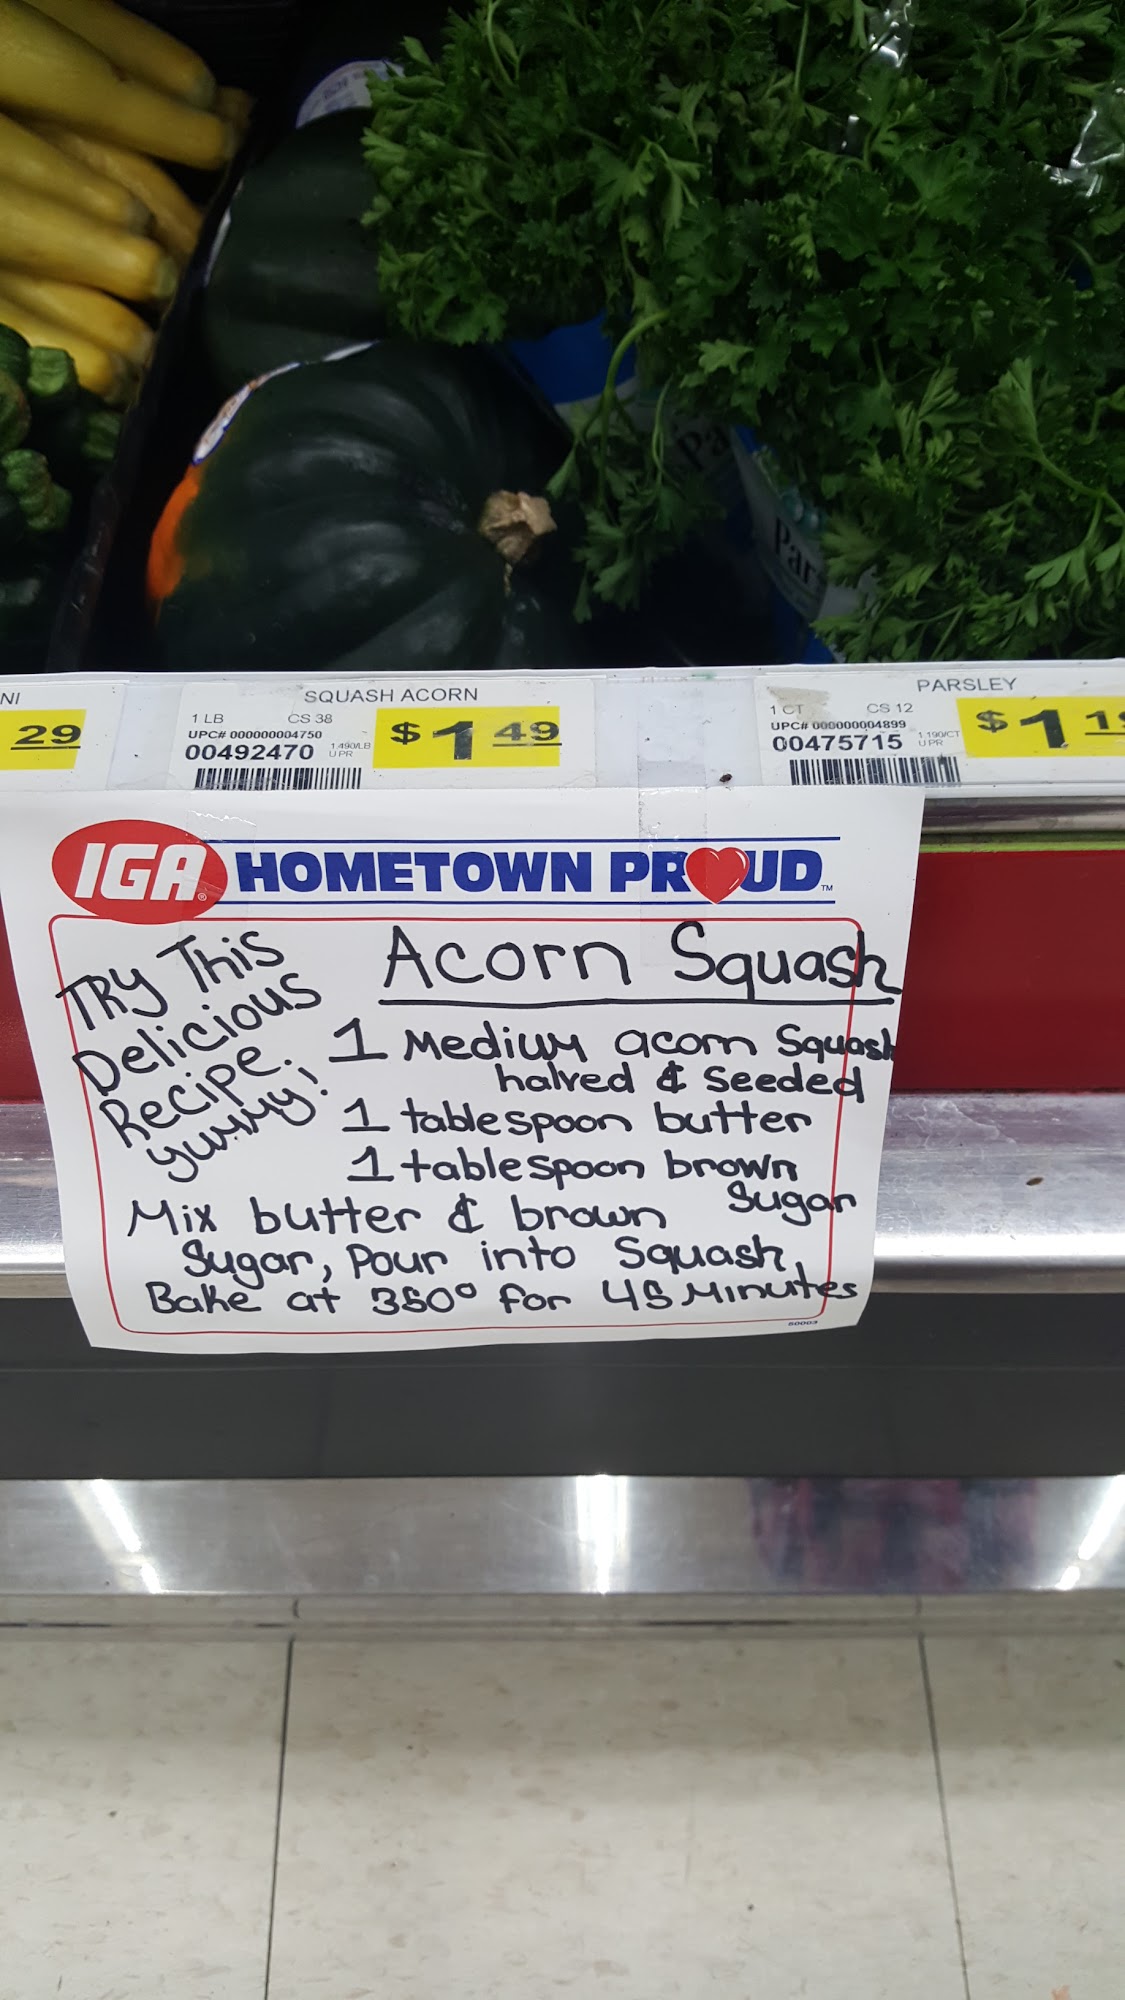 Pa
Par
NI
29
SQUASH ACORN
1 LB CS 38
UPC# 000000004750
00492470
1.490/LB
U PR
$1 49
PARSLEY
1 CT CS 12
UPC# 000000004899
00475715
1.190/CT
U PR
$1 19
IGA HOMETOWN PROUD™
TRY This
Delicious
Recipe.
yummy!
Acorn Squash
1 Medium acorn Squash
halved & Seeded
1 tablespoon butter
1 tablespoon brown
Sugar
Mix butter & brown
Sugar, Pour into Squash
Bake at 350° for 45 Minutes
50003